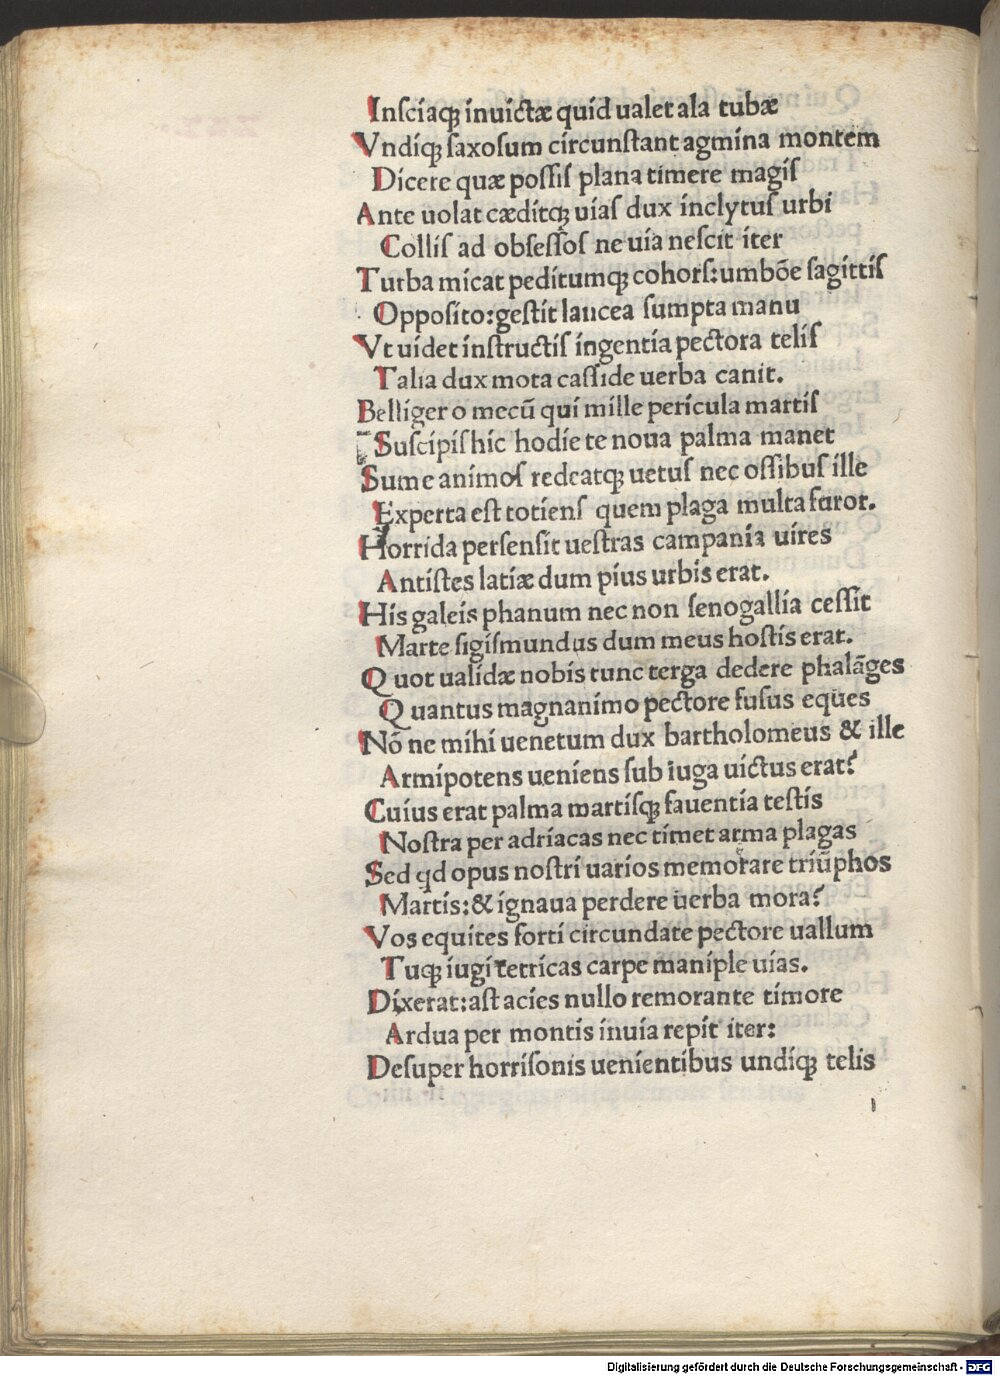 Inſciaqꝫ inuictæ quid ualet ala tubæ
Vndiqꝫ ſaxoſum circunſtant agmina montem
Dicere quæ poſſiſ plana timere magiſ
Ante uolat cæditqꝫ uiaſ dux inclytuſ urbi
Colliſ ad obſeſſoſ ne uia neſcit iter
Turba micat peditumqꝫ cohorſ:umbōe ſagittiſ
Oppoſito:geſtit lancea ſumpta manu
Vt uidet inſtructiſ ingentia pectora teliſ
Talia dux mota caſſide uerba canit.
Belliger o mecū qui mille pericula martiſ
Suſcipiſ hic hodie te noua palma manet
Sume animoſ redeatqꝫ uetuſ nec oſſibuſ ille
Experta eſt totienſ quem plaga multa furor.
Horrida perſenſit ueſtras campania uires
Antiſtes latiæ dum pius urbis erat.
His galeis phanum nec non ſenogallia ceſſit
Marte ſigiſmundus dum meus hoſtis erat.
Quot ualidæ nobis tunc terga dedere phalāges
Quantus magnanimo pectore fuſus eques
Nō ne mihi uenetum dux bartholomeus & ille
Armipotens ueniens ſub iuga uictus erat?
Cuius erat palma martiſqꝫ fauentia teſtis
Noſtra per adriacas nec timet arma plagas
Sed qd opus noſtri uarios memorare triūphos
Martis:& ignaua perdere uerba mora?
Vos equites forti circundate pectore uallum
Tuqꝫ iugi tetricas carpe maniple uias.
Dixerat:aſt acies nullo remorante timore
Ardua per montis inuia repit iter:
Deſuper horriſonis uenientibus undiqꝫ telis
Digitalisierung gefördert durch die Deutsche Forschungsgemeinschaft - DFG